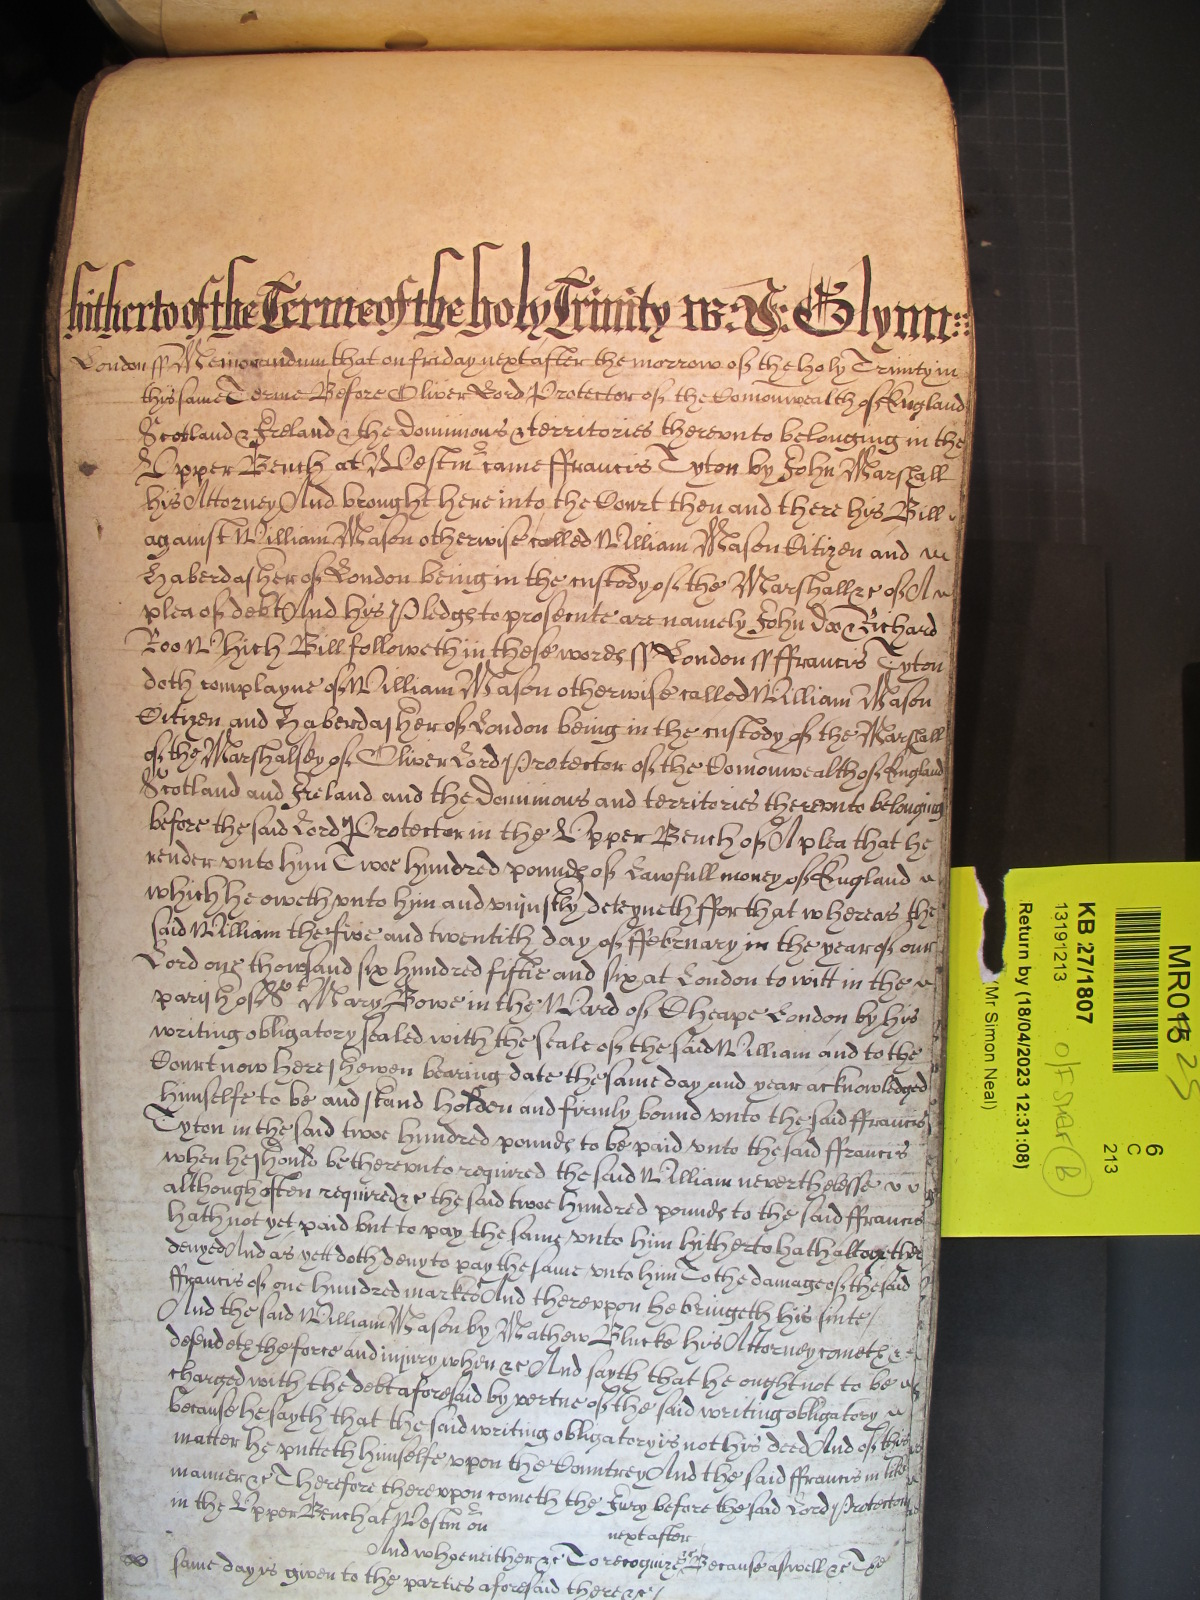 hitherto of the Terme of the holy Trinity W: J: Glynn::
London ss Memorandum that on friday next after the morrow of the holy Trinity in
this same Terme Before Oliver Lord Protector of the Comonwealth of England
Scotland & Ireland & the Dominions & territories thereunto belonging in the
Upper Bench at Westm came ffrancis Tyton by John Marshall
his Attorney And brought here into the Court then and there his Bill
against William Mason otherwise called William Mason Citizen and
Haberdasher of London being in the custody of the Marshall &c of A
plea of debt And his Pledgs to prosecute are namely John Doo & Richard
Roo Which Bill followeth in these words ss London ss ffrancis Tyton
doth complayne of William Mason otherwise called William Mason
Citizen and Haberdasher of London being in the custody of the Marshall
of the Marshalsey of Oliver Lord Protector of the Comonwealth of England
Scotland and Ireland and the Dominions and territories thereunto belonging
before the said Lord Protector in the Upper Bench of A plea that he
render unto him Twoe hundred pounds of Lawfull money of England
which he oweth unto him and unjustly deteyneth ffor that whereas the
said William the five and twentith day of ffebruary in the year of our
Lord one thowsand six hundred fiftie and six at London to witt in the
parish of St Mary Bowe in the Ward of Cheape London by his
writing obligatory sealed with the seale of the said William and to the
Court now here shewen bearing date the same day and year acknowledged
himselfe to be and stand holden and firmly bound unto the said ffrancis
Tyton in the said twoe hundred pounds to be paid unto the said ffrancis
when he should be thereunto required the said William neverthelesse
although often required &c the said twoe hundred pounds to the said ffrancis
hath not yet paid but to pay the same unto him hitherto hath altogether
denyed And as yett doth deny to pay the same unto him To the damage of the said
ffrancis of one hundred marks And thereupon he bringeth his suite/
And the said William Mason by Mathew Blucke his Attorney cometh &
defendeth the force and injury when &c And sayth that he ought not to be
charged with the debt aforesaid by vertue of the said writing obligatory
because he sayth that the said writing obligatory is not his deed And of this
matter he putteth himselfe upon the Countrey And the said ffrancis in like
manner &c Therefore thereupon cometh the Jury before the said Lord Protector
in the Upper Bench at Westm on
next after
And who neither &c To recognize &c Because aswell &c The
same day is given to the parties aforesaid there &c/
MR013
25
6
C
213
KB 27/1807
13191213
Return by (18/04/2023 12:31:08)
(Mr Simon Neal)